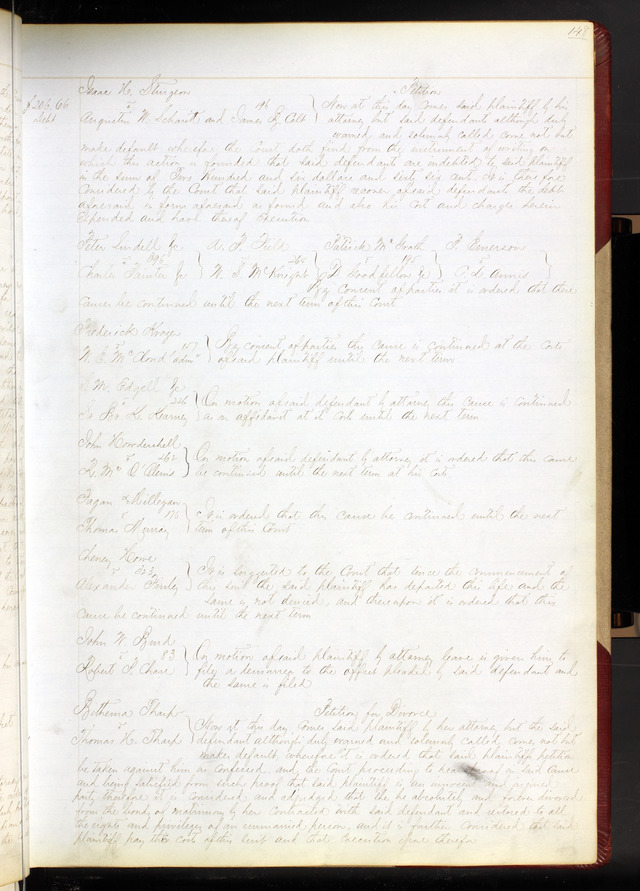 148
Isaac H. Sturgeon Petition
$206.66 vs 196 Now at this day comes said plaintiff by his
Debt W. Schmidt and James Colt attorney but said defendants although duly
warned and solemnly called come not but
make default wherefore the Court doth find from the instrument of writing on
which this action is founded that said defendants are indebted to said plaintiff
in the sum of Two Hundred and six dollars and sixty six cents it is therefore
considered by the Court that said plaintiff recover of said defendants the debt
aforesaid in form aforesaid as found and also his cost and charges herein
expended and have thereof execution
Peter Lindell Jr A. P. Field Patrick McGrath F. Emerson
vs 395
Charles Jr W. T. McKnight Goodfellow P. L.
By Consent of parties it is ordered that these
causes be continued until the next term of this Court
Frederick By consent of parties this cause is continued at the costs
W. McCloud "adm" of said plaintiff until the next term
S. M. Edgell Jr
vs 246 On motion of said defendant by attorney this cause is continued
Kearney on an affidavit at costs until the next term
John Howdershell
vs 462 On motion of said defendant by attorney it is ordered that this cause
be continued until the next term at his costs
Fagan & Killegan
It is ordered that this cause be continued until the next
Thomas Murray term of this Court
Cheney Howe
vs 323 It is suggested to the Court that since the commencement of
Alexander Finley this suit the said plaintiff has departed this life and the
same is not denied and thereupon it is ordered that this
cause be continued until the next term
John W. Burd
vs 83 On motion of said plaintiff by attorney leave is given him to
Robert F. Chase file a demurrer to the offset pleaded by said defendant and
the same is filed
Bethenia Tharp Petition for Divorce
vs Now at this day comes said plaintiff by her attorney but the said
Thomas H. Tharp defendant although duly warned and solemnly called comes not but
makes default wherefore it is ordered that said plaintiffs petition
be taken against him as confessed, and the Court proceeding to hear proof in said cause
and being satisfied from such proof that said plaintiff is an innocent and injured
party therefore it is considered and adjudged that she be absolutely and forever divorced
from the bonds of matrimony by her contracted with said defendant and restored to all
the rights and privileges of an unmarried person, and it is further considered that said
plaintiff pay the costs of this suit and that execution issue therefor